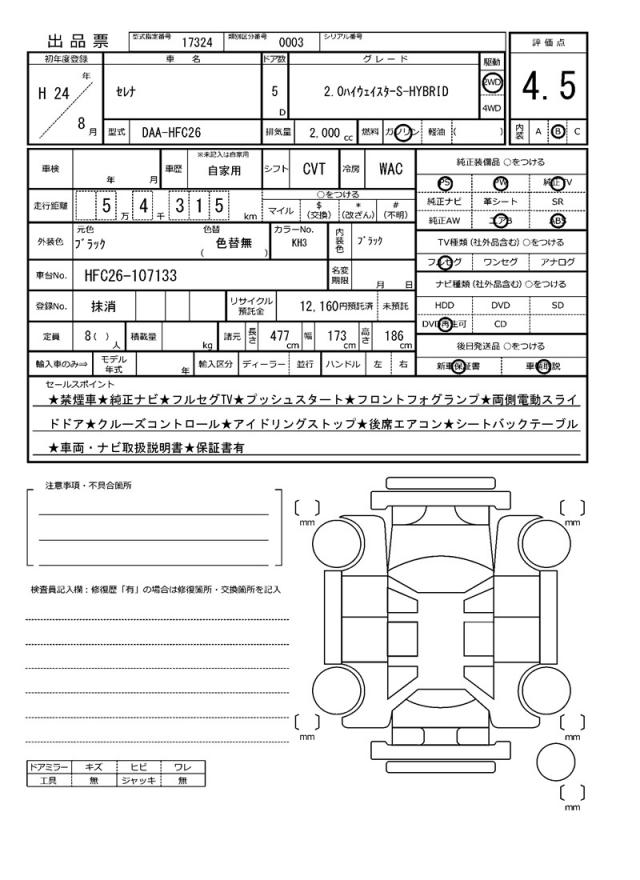 出品票 型式指定番号 17324 類別区分番号 0003 シリアル番号
初年度登録 車名 ドア数 グレード 駆動 評価点
H 24 年 8 月 セレナ 5 D 2.0ハイウェイスターS-HYBRID 2WD 4WD 4.5
型式 DAA-HFC26 排気量 2,000 cc 燃料 ガソリン 軽油 ( ) 内装 A B C
車検 年 月 車歴 ※未記入は自家用 自家用 シフト CVT 冷房 WAC 純正装備品 ○をつける
PS PW 純正TV
走行距離 5 万 4 千 3 1 5 km ○をつける 純正ナビ 革シート SR
マイル $(交換) *(改ざん) #(不明) 純正AW エアB ABS
外装色 元色 ブラック 色替 ( 色替無 ) カラーNo. KH3 内装色 ブラック TV種類(社外品含む)○をつける
フルセグ ワンセグ アナログ
車台No. HFC26-107133 名変期限 月 日 ナビ種類(社外品含む)○をつける
登録No. 抹消 リサイクル預託金 12,160円預託済 未預託 HDD DVD SD
DVD再生可 CD
定員 8( ) 人 積載量 kg 諸元 長さ 477 cm 幅 173 cm 高さ 186 cm 後日発送品 ○をつける
輸入車のみ⇒ モデル年式 年 輸入区分 ディーラー 並行 ハンドル 左 右 新車保証書 車輌取説
セールスポイント
★禁煙車★純正ナビ★フルセグTV★プッシュスタート★フロントフォグランプ★両側電動スライ
ドドア★クルーズコントロール★アイドリングストップ★後席エアコン★シートバックテーブル
★車両・ナビ取扱説明書★保証書有
注意事項・不具合箇所
mm mm
検査員記入欄:修復歴「有」の場合は修復箇所・交換箇所を記入
mm mm
ドアミラー キズ ヒビ ワレ
工具 無 ジャッキ 無
mm